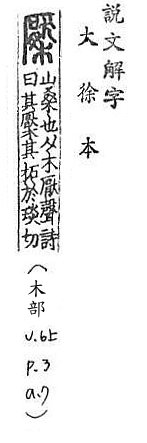 説文解字
大徐本
檿
山桑也从木厭聲詩
曰其檿其柘於琰切
(木部
v.6上
p.3
a.7)